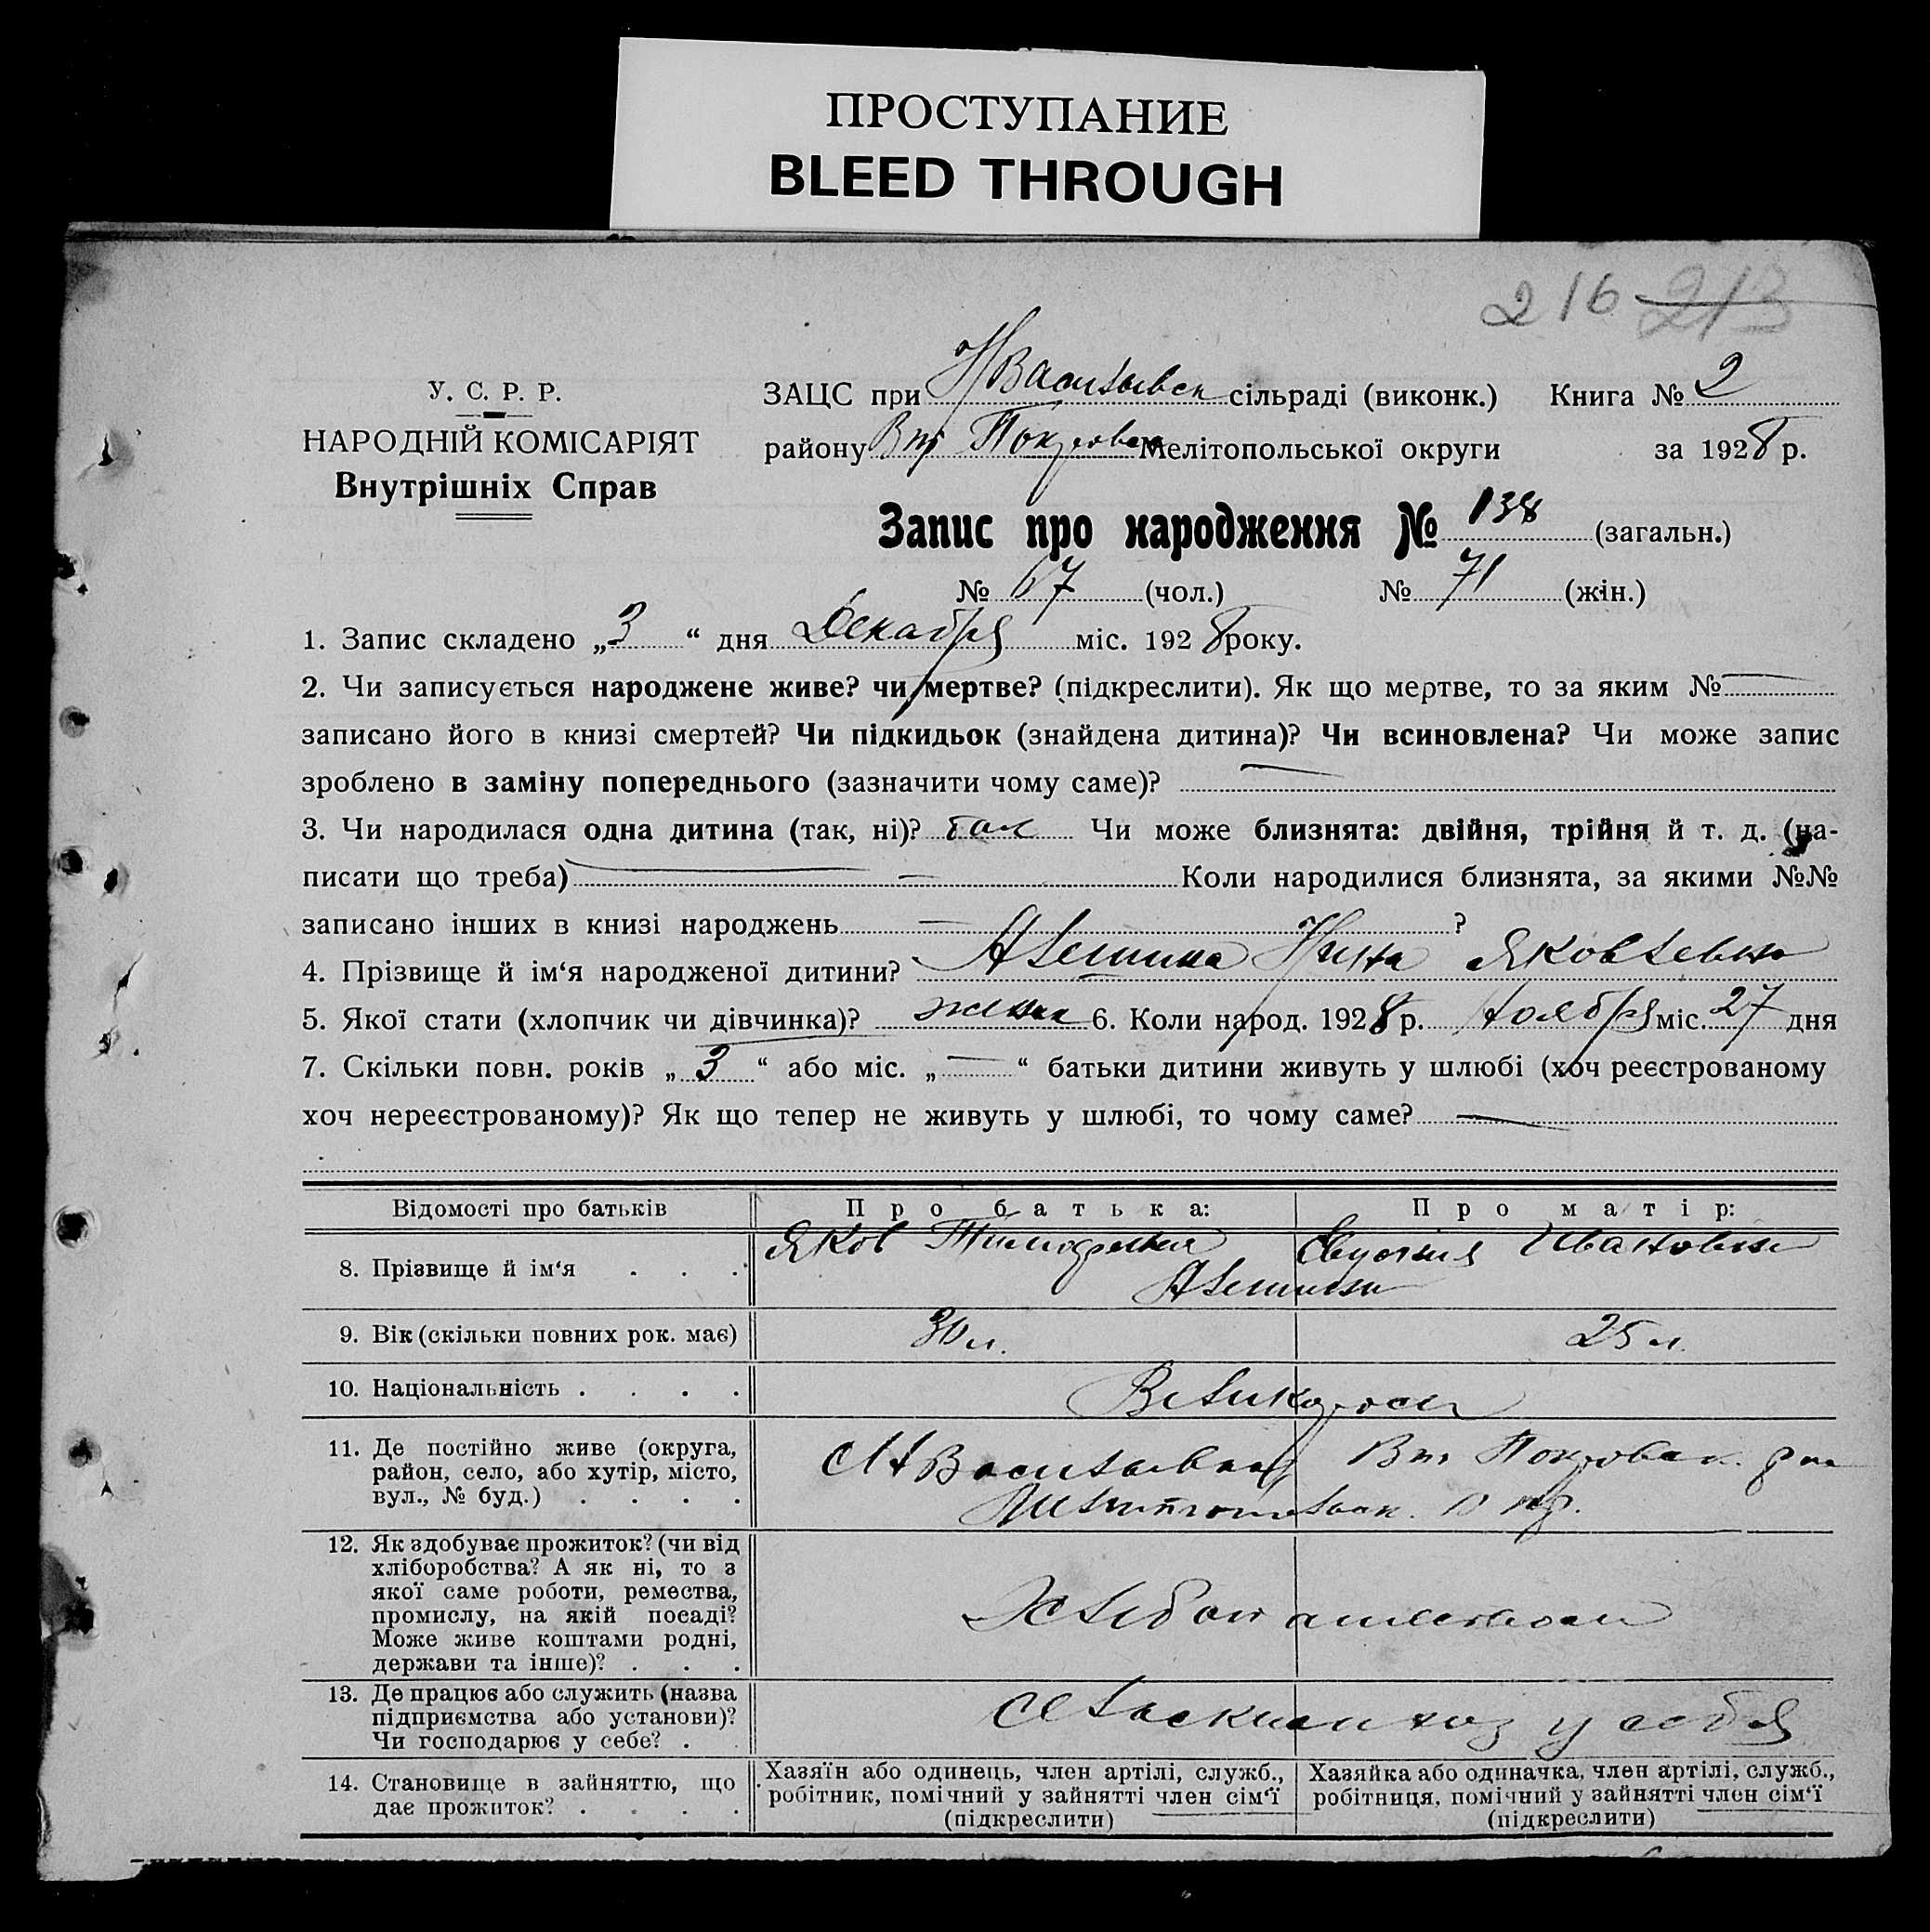 ПРОСТУПАНИЕ
BLEED THROUGH
216 213
У. С. Р. Р.
НАРОДНІЙ КОМІСАРІЯТ
Внутрішніх Справ
ЗАЦС при НВасильевск сільраді (виконк.) Книга № 2
району Вт Покровск Мелітопольської округи за 1928 р.
Запис про народження № 138 (загальн.)
№ 67 (чол.) № 71 (жін.)
1. Запис складено „3“ дня Декабря міс. 1928 року.
2. Чи записується народжене живе? чи мертве? (підкреслити). Як що мертве, то за яким № —
записано його в книзі смертей? Чи підкидьок (знайдена дитина)? Чи всиновлена? Чи може запис
зроблено в заміну попереднього (зазначити чому саме)? —
3. Чи народилася одна дитина (так, ні)? так Чи може близнята: двійня, трійня й т. д. (на-
писати що треба) — Коли народилися близнята, за якими №№
записано інших в книзі народжень — ?
4. Прізвище й ім‘я народженої дитини? Алешина Нина Яковлевна
5. Якої стати (хлопчик чи дівчинка)? женск 6. Коли народ. 1928 р. Ноября міс. 27 дня
7. Скільки повн. років „3“ або міс. „—“ батьки дитини живуть у шлюбі (хоч реєстрованому
хоч нереєстрованому)? Як що тепер не живуть у шлюбі, то чому саме? —
Відомості про батьків Про батька: Про матір:
8. Прізвище й ім‘я . . . Яков Тимофеевич Евгения Ивановна
Алешины
9. Вік (скільки повних рок. має) 30 л. 25 л.
10. Національність . . . . Великоросы
11. Де постійно живе (округа,
район, село, або хутір, місто,
вул., № буд.) . . . .
С НВасильевка Вт Покровск. р на
Мелитопольск. окр.
12. Як здобуває прожиток? (чи від
хліборобства? А як ні, то з
якої саме роботи, ремества,
промислу, на якій посаді?
Може живе коштами родні,
держави та інше)? . . .
Хлебопашеством
13. Де працює або служить (назва
підприємства або установи)?
Чи господарює у себе? .
хоз у себя
14. Становище в зайняттю, що
дає прожиток? . . . .
Хазяїн або одинець, член артілі, служб.,
робітник, помічний у зайнятті член сім‘ї
(підкреслити)
Хазяйка або одиначка, член артілі, служб.,
робітниця, помічний у зайнятті член сім‘ї
(підкреслити)